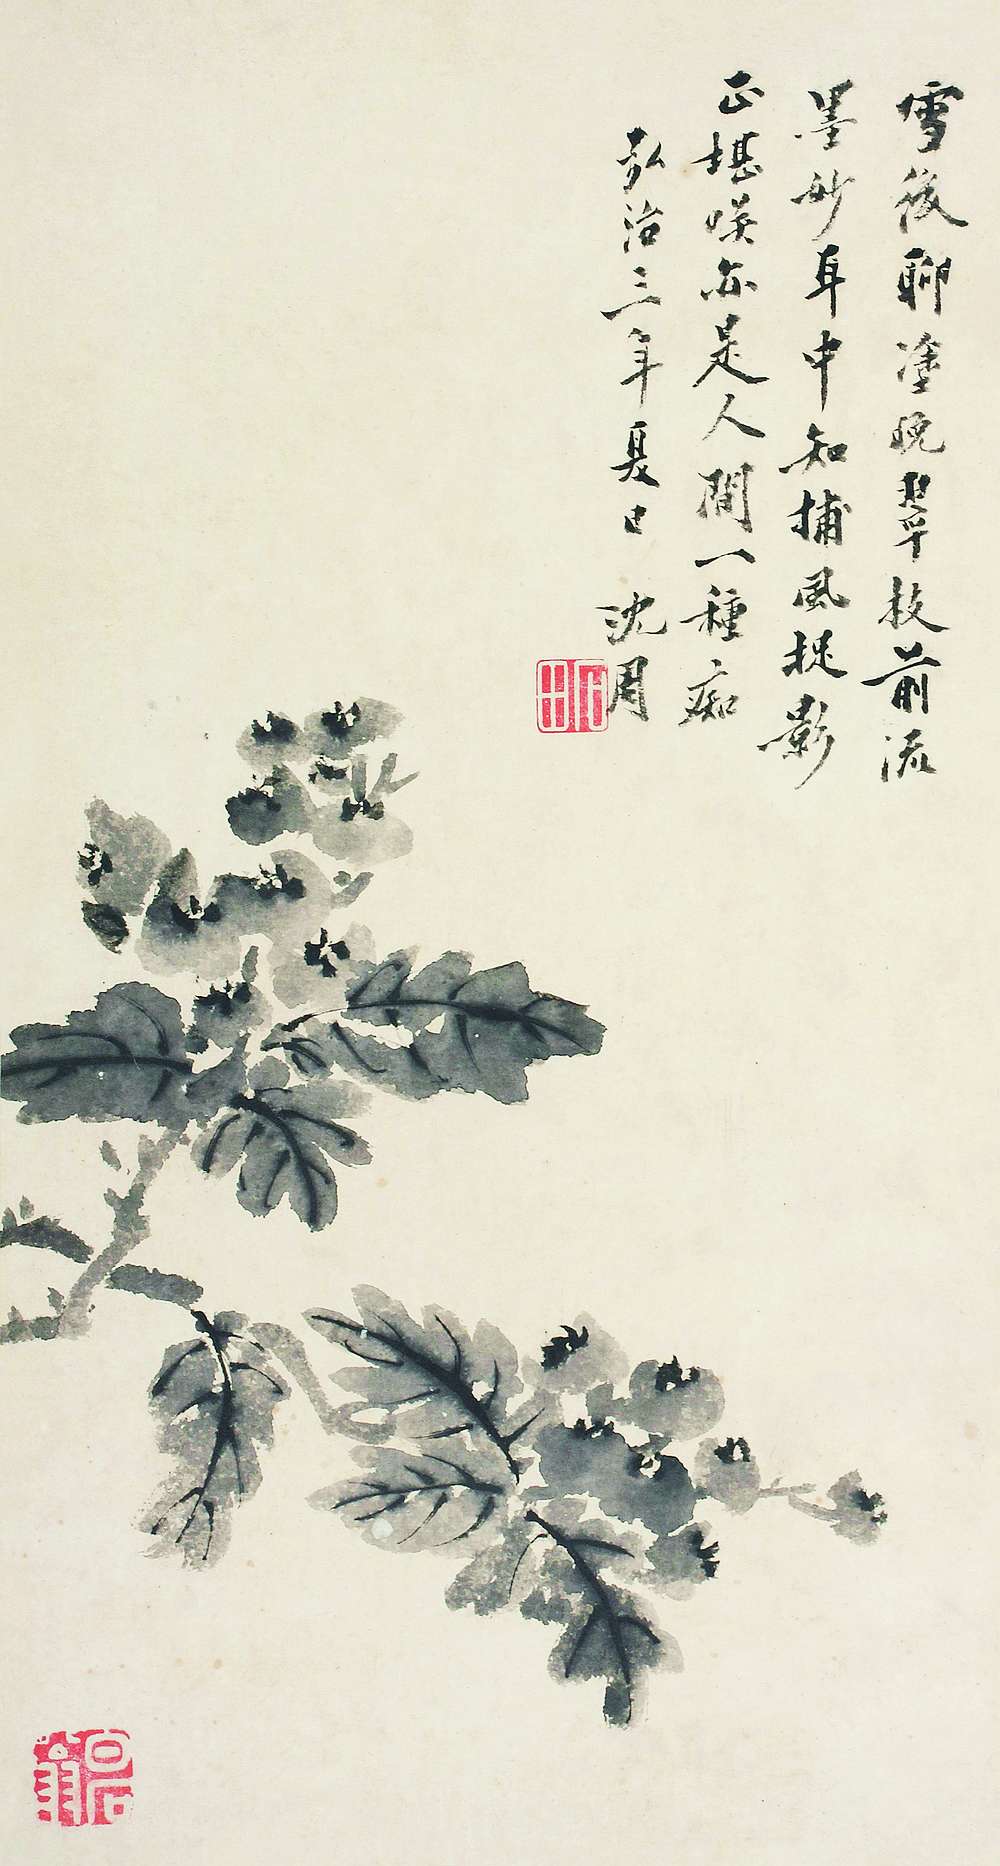 雪後聊塗晚翠枝前流
墨妙耳中知捕風捉影
正堪咲亦足人間一種痴
弘治三年夏日 沈周
石田